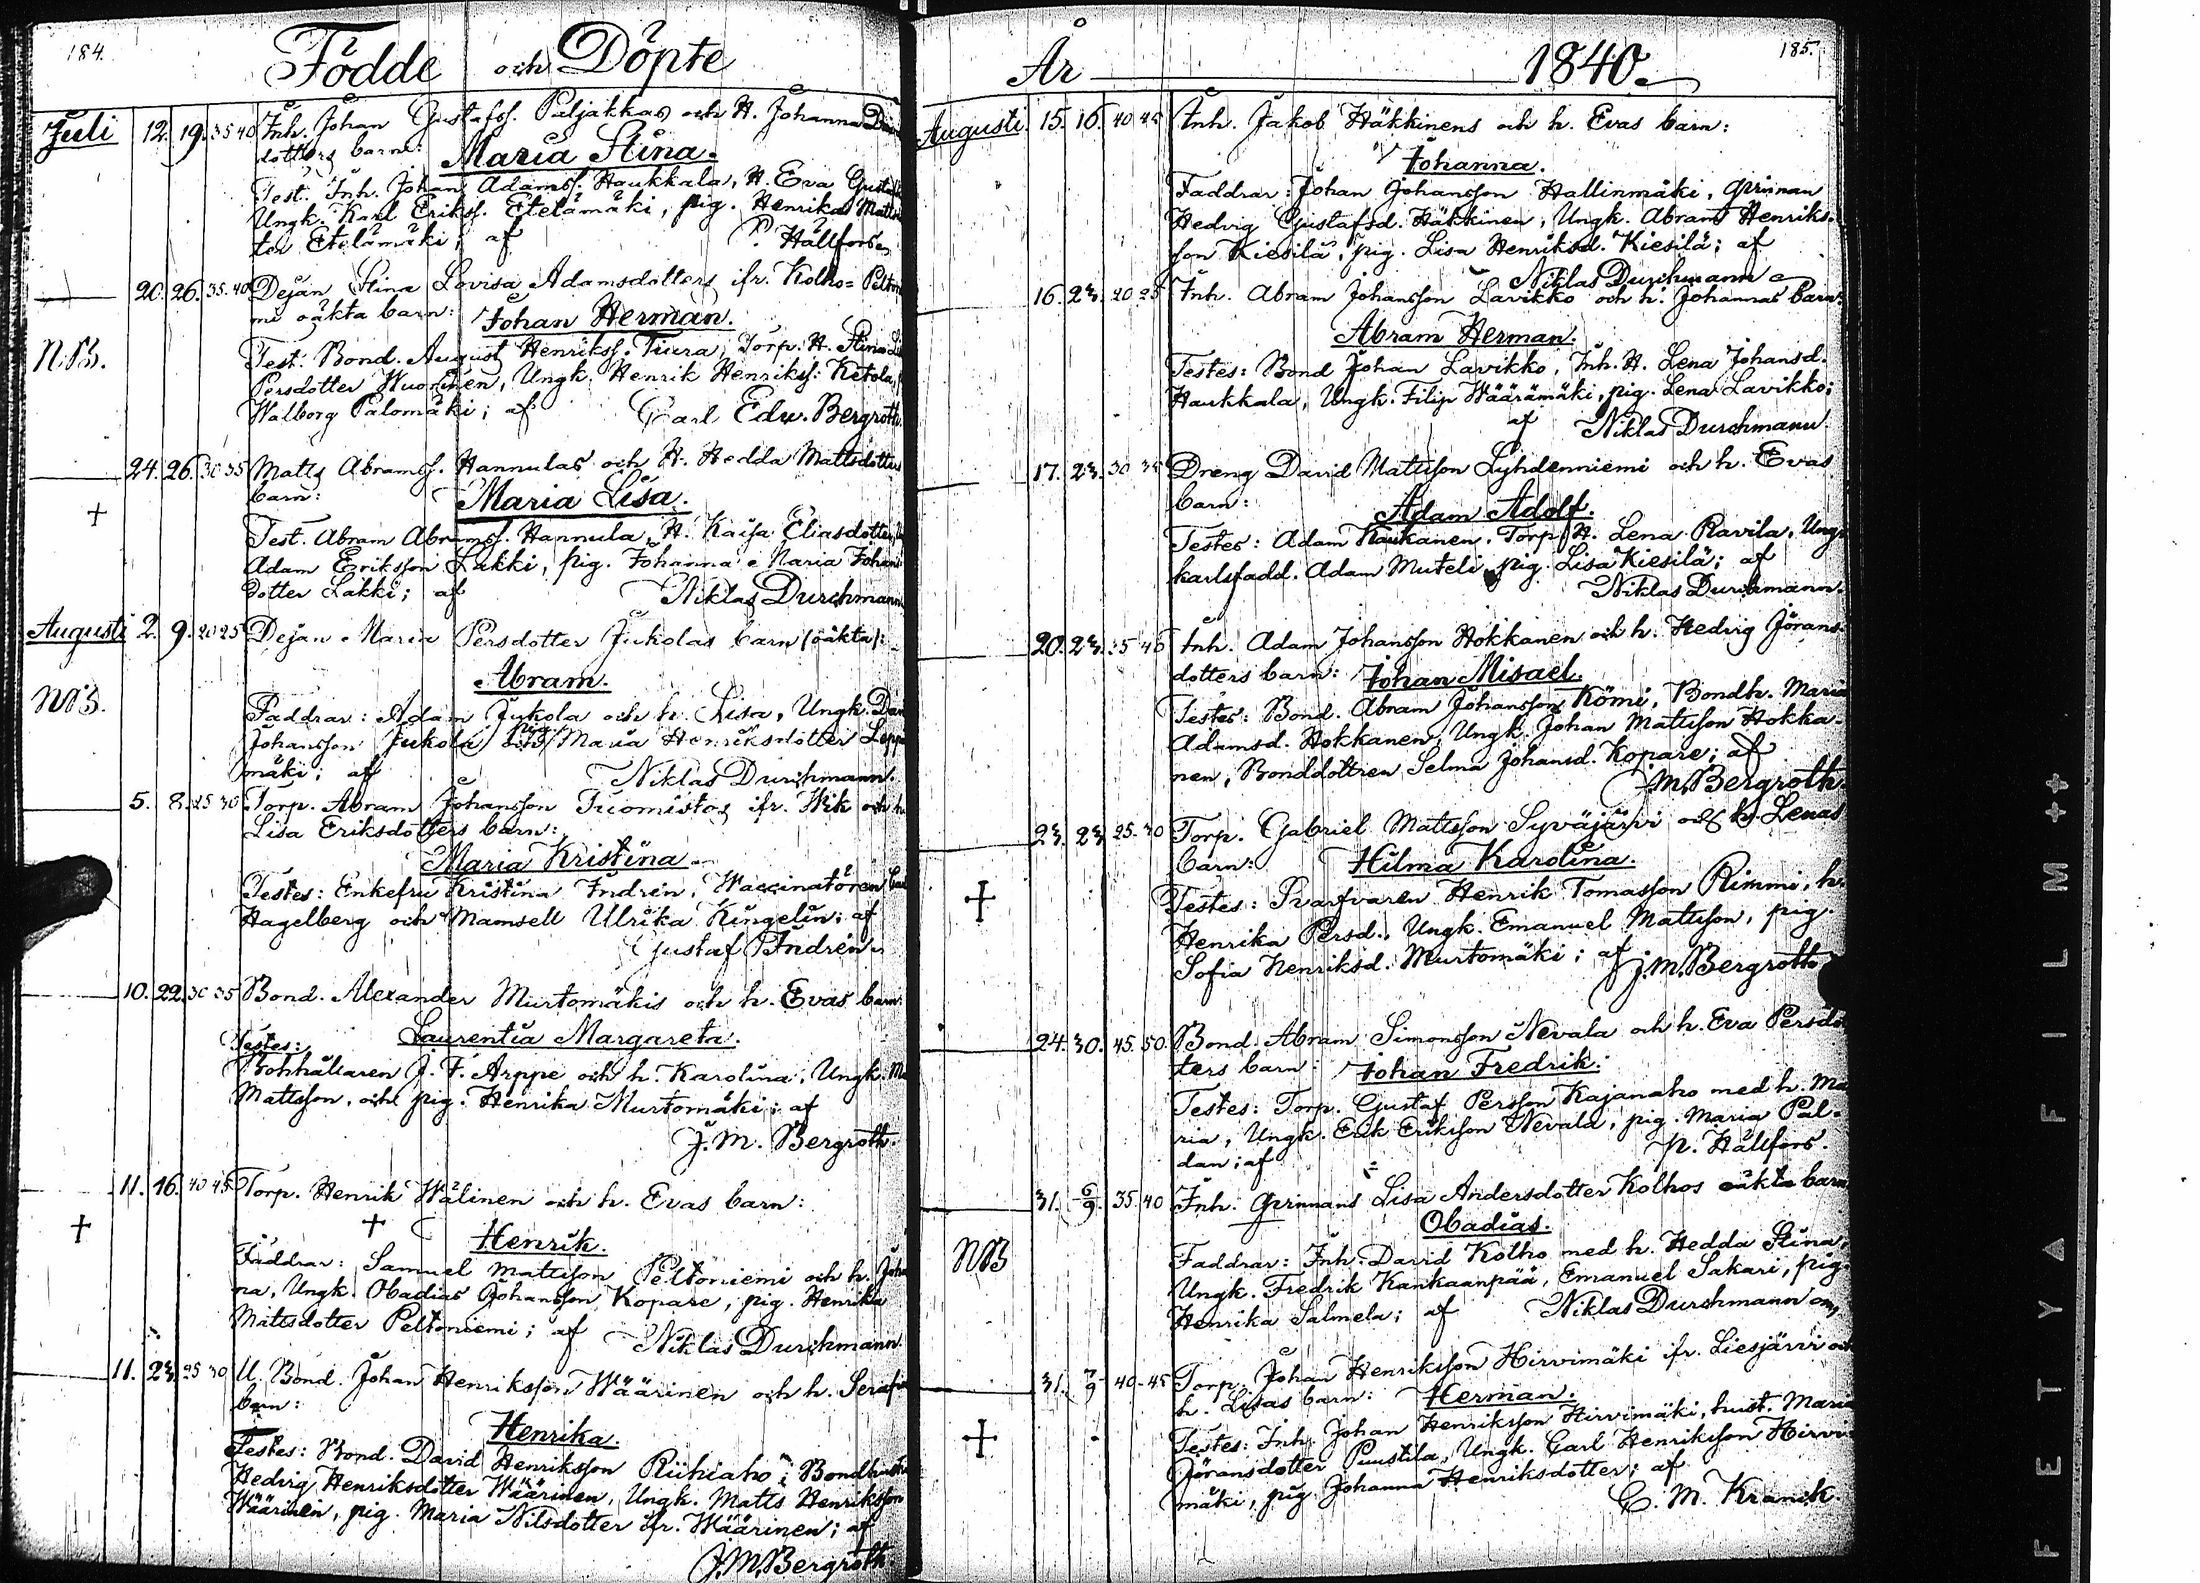 184.
Födde och Döpte
Juli 12. 19. 35 40 Inh. Johan Gustafss. Paljakkas och H. Johanna
dotters barn:
Maria Stina.
Test. Inh. Johan Adamss. Haukkala, H. Eva
Ungk. Karl Erikss. Etelämäki, pig. Henrika
ter Etelämäki; af P. Hällfors
20. 26. 35. 40 Dejan Stina Lovisa Adamsdotters ifr. Kolho=
mi oäkta barn: Johan Herman.
NB. Test. Bond. August Henrikss. Tiura, Torp. H. Stina
Persdotter Wuorinen, Ungk. Henrik Henrikss: Ketola,
Walborg Palomäki; af Carl Edw. Bergroth.
24. 26. 30 35 Matts Abramss. Hannulas och H. Hedda Mattsdotters
barn:
Maria Lisa.
+
Test. Abram Abramss. Hannula, H. Kaisa Eliasdotter,
Adam Eriksson Lakki, pig. Johanna Maria
dotter Lakki; af Niklas Durchmann
Augusti 2. 9. 20 25 Dejan Maria Persdotter Jukolas barn /oäkta/:
Abram.
NB.
Faddrar: Adam Jukola och h. Lisa, Ungk.
Johansson Jukola, Maria Henriksdotter
mäki; af Niklas Durchmann.
5. 8. 25 30 Torp. Abram Johansson Tuomistos ifr. Wik och h.
Lisa Eriksdotters barn:
Maria Kristina
Testes: Enkefru Kristina Indrén, Waccinatören
Hagelberg och Mamsell Ulrika Kingelin; af
Gustaf Indrén.
10. 22. 30 35 Bond. Alexander Murtomäkis och h. Evas barn.
Laurentia Margareta.
Testes:
Bohhållaren J. F. Arppe och h. Karolina, Ungk.
Mattsson, och pig. Henrika Murtomäki; af
J. M. Bergroth.
11. 16. 40 45 Torp. Henrik Wälinen och h. Evas barn:
+ +
Henrik.
Faddrar: Samuel Mattsson Peltoniemi och h.
na, Ungk. Obadias Johansson Kopare, pig. Henrika
Mattsdotter Peltoniemi; af Niklas Durchmann
11. 23. 25 30 U. Bond. Johan Henriksson Wäärinen och h.
barn:
Henrika.
Testes: Bond. David Henriksson Riihiaho; Bondhustr
Hedvig Henriksdotter Wäärinen, Ungk. Matts Henriksson
Wäärinen, pig. Maria Nilsdotter ifr. Wäärinen; af
J. M. Bergroth
År 1840.
185.
Augusti. 15. 16. 40 45 Inh. Jakob Häkkinens och h. Evas barn:
Johanna.
Faddrar: Johan Johansson Hallinmäki, qvinnan
Hedvig Gustafsd. Häkkinen, Ungk. Abram Henriks-
son Kiesilä, pig. Lisa Henriksd. Kiesilä; af
Niklas Durchmann
16. 23. 20 25 Inh. Abram Johansson Lavikko och h. Johannas barn.
Abram Herman.
Testes: Bond Johan Lavikko, Inh. H. Lena Johansd.
Haukkala, Ungk. Filip Wäärämäki, pig. Lena Lavikko;
af Niklas Durchmann.
17. 23. 30 35 Dreng David Mattsson Lyhdenniemi och h. Evas
barn:
Adam Adolf.
Testes: Adam Kaukanen, Torp. H. Lena Ravila, Ung-
karlsfadd. Adam Muteli, pig. Lisa Kiesilä; af
Niklas Durchmann.
20. 23. 35 40 Inh. Adam Johansson Hokkanen och h. Hedvig Jörans-
dotters barn: Johan Misael.
Testes: Bond. Abram Johansson Kömi, Bondh. Maria
Adamsd. Hokkanen, Ungk. Johan Mattsson Hokka-
nen, Bonddottren Selma Johansd. Kopare; af
J. M. Bergroth.
23. 23. 25. 30 Torp. Gabriel Mattsson Syväjärvi och h. Lenas
barn: Hilma Karolina.
+
Testes: Svarfvaren Henrik Tomasson Rimmi, h.
Henrika Persd., Ungk. Emanuel Mattsson, pig.
Sofia Henriksd. Murtomäki; af J. M. Bergroth
24. 30. 45. 50. Bond. Abram Simonsson Nevala och h. Eva Persdo
ters barn: Johan Fredrik.
Testes: Torp. Gustaf Persson Kajanaho med h. Ma
ria, Ungk. Erik Eriksson Nevala, pig. Maria Pal-
dan; af P. Hällfors.
31. 6/9. 35. 40 Inh. qvinnans Lisa Andersdotter Kolhos oäkta barn
Obadias.
NB
Faddrar: Inh. David Kolho med h. Hedda Stina,
Ungk. Fredrik Kankaanpää, Emanuel Sakari, pig.
Henrika Salmela; af Niklas Durchmann
31. 7/9 40-45 Torp. Johan Henriksson Hirvimäki ifr. Liesjärvi och
h. Lisas barn: Herman.
+
Testes: Inh. Johan Henriksson Hirvimäki, hust. Maria
Jöransdotter Puustila, Ungk. Carl Henriksson Hirvi-
mäki, pig. Johanna Henriksdotter; af
C. M. Kranck.
FETYAFILM ++